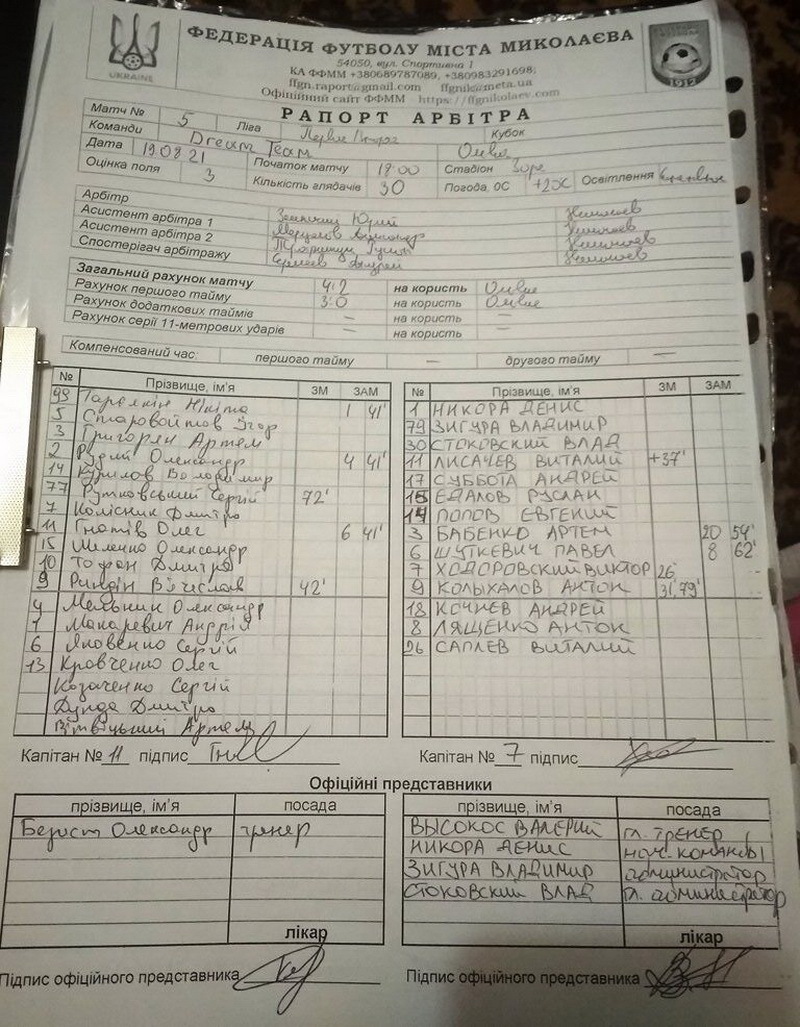 UKRAINE
ФЕДЕРАЦІЯ ФУТБОЛУ МІСТА МИКОЛАЄВА
54050, вул. Спортивна 1
КА ФФММ +380689787089, +380983291698,
ffgn.raport@gmail.com ffgnik@meta.ua
Офіційний сайт ФФММ https://ffgnikolaev.com
РАПОРТ АРБІТРА
Матч № 5 Ліга Кубок
Команди Dream Team Олвие
Дата 19.08 21 Початок матчу 18:00 Стадіон Зоря
Оцінка поля 3 Кількість глядачів 30 Погода, 0С Освітлення
Арбітр Юрий
Асистент арбітра 1 Александр
Асистент арбітра 2
Спостерігач арбітражу Андрей
Загальний рахунок матчу 4:2 на користь Олвие
Рахунок першого тайму 3:0 на користь Олвие
Рахунок додаткових таймів – на користь –
Рахунок серії 11-метрових ударів – на користь –
Компенсований час: першого тайму – другого тайму –
№ Прізвище, ім'я ЗМ ЗАМ
99 Нікіта 1 41'
5 Старовойтов Ігор
3 Григорян Артем
2 Рудий Олександр 4 41'
14 Курилов Володимир
77 Рутковський Сергій 72'
7 Колісник Дмитро
11 Гнатів Олег 6 41'
15 Шленко Олександр
10 Дмитро
9 Вячеслав 42'
4 Мельник Олександр
1 Макаревич Андрій
6 Яковенко Сергій
13 Кровченко Олег
Козаченко Сергій
Дмитро
Артем
Капітан № 11 підпис
№ Прізвище, ім'я ЗМ ЗАМ
1 НИКОРА ДЕНИС
79 ЗИГУРА ВЛАДИМИР
30 СТОКОВСКИЙ ВЛАД
11 ЛИСАЧЕВ ВИТАЛИЙ +37'
17 СУББОТА АНДРЕЙ
ЕДАЛОВ РУСЛАН
ПОПОВ ЕВГЕНИЙ
3 БАБЕНКО АРТЕМ 20 54'
6 ШУТКЕВИЧ ПАВЕЛ 8 62'
7 ХОДОРОВСКИЙ ВИКТОР 26'
9 КОЛЫХАЛОВ АНТОН 31,79'
18 КОЧНЕВ АНДРЕЙ
8 ЛЯЩЕНКО АНТОН
26 САПЛЕВ ВИТАЛИЙ
Капітан № 7 підпис
Офіційні представники
прізвище, ім'я посада
Олександр тренер
лікар
Підпис офіційного представника
прізвище, ім'я посада
ВЫСОКОС ВАЛЕРИЙ гл. ТРЕНЕР
НИКОРА ДЕНИС нач. команды
ЗИГУРА ВЛАДИМИР администратор
СТОКОВСКИЙ ВЛАД гл. администратор
лікар
Підпис офіційного представника